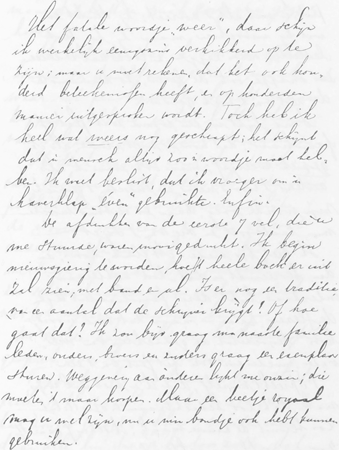 "Het fatale woordje "weer", daar schijn
ik werkelijk eenigszins verkikkerd op te
zijn; maar u moet rekenen, dat het ook hon-
derd beteekenissen heeft, en op honderden
manier uitgesproken wordt. Toch heb ik
heel wat weers nog geschrapt; het schijnt
dat 'n mensch altijd zoo'n woordje moet heb-
ben. Ik weet beslist, dat ik vroeger om 'n
haverklap "even" gebruikte. Enfin.
De afdrukken van de eerste 7 vel, die u
me stuurde, waren mooi gedrukt. Ik begin
nieuwsgierig te worden, hoe 't heele boek er uit
zal zien, met band en al. Is er nog een traditie
van een aantal dat de schrijver krijgt? Of hoe
gaat dat? Ik zou bijv. graag m'n naaste familie
leden, ouders, broers en zusters graag een exemplaar
sturen. Weggeven aan anderen lijkt me onzin; die
moeten 't maar koopen. Maar een beetje royaal
mag u wel zijn, nu u m'n bundje ook hebt kunnen
gebruiken.